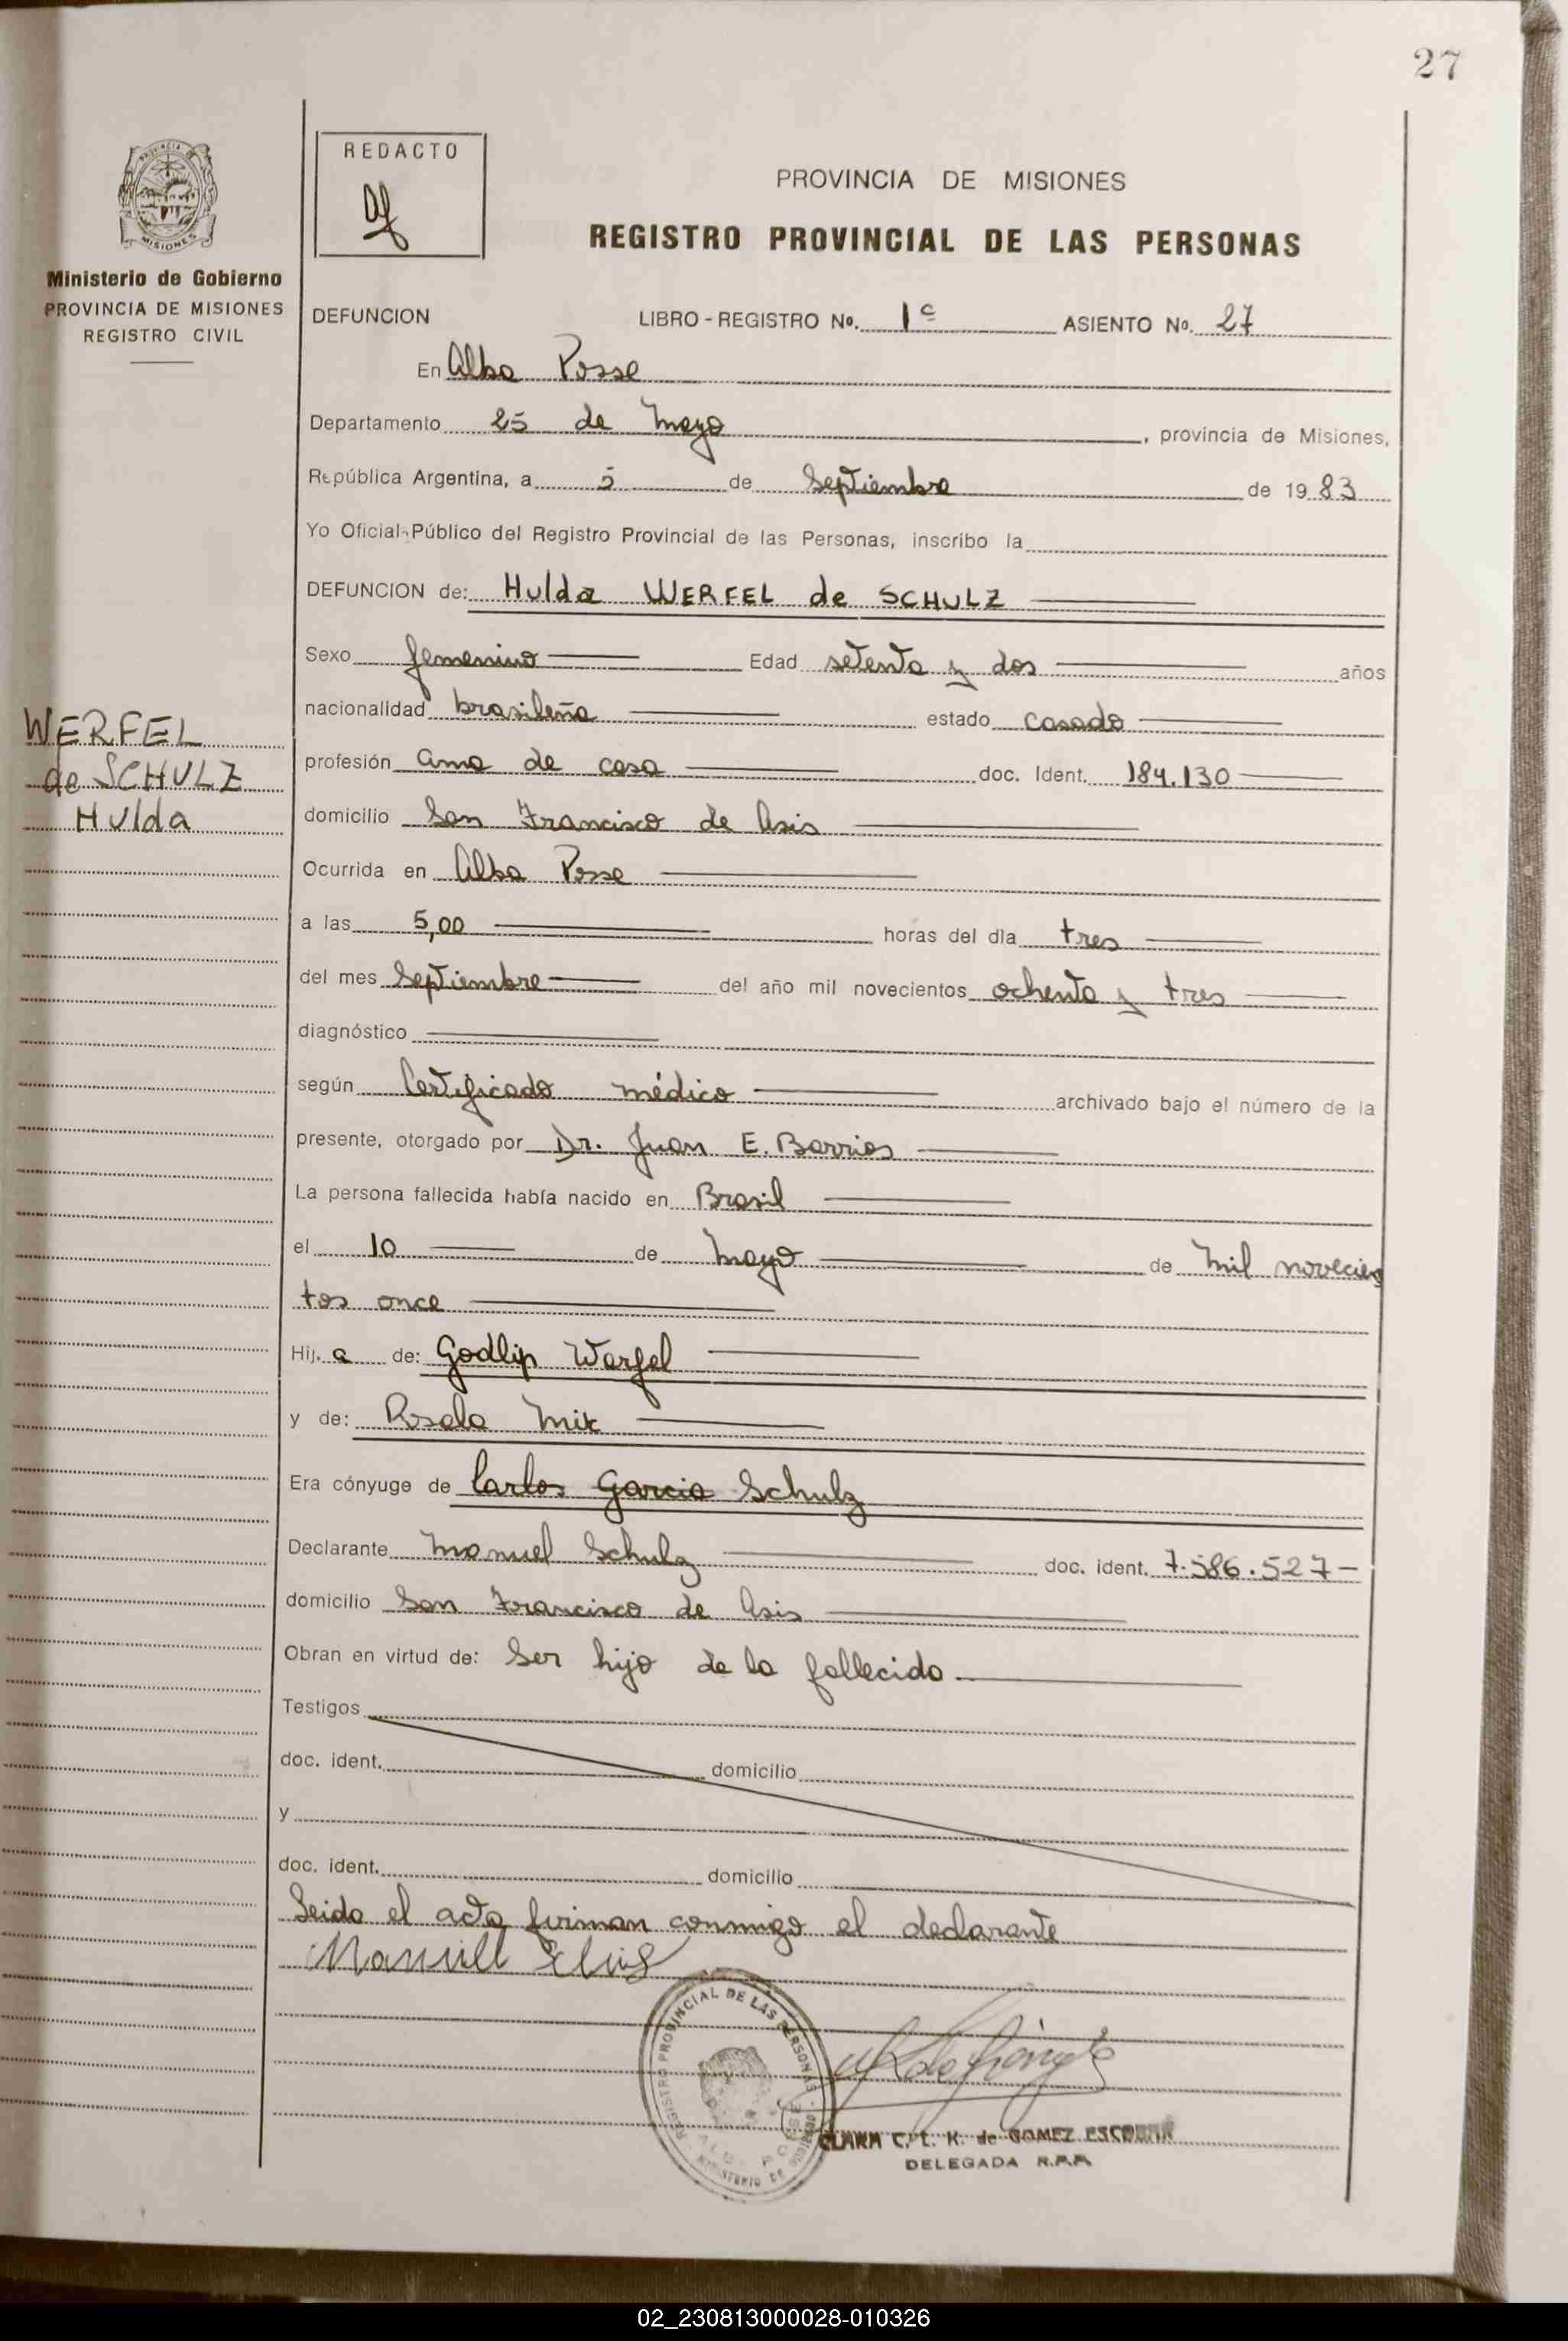 27
REDACTO
PROVINCIA DE MISIONES
REGISTRO PROVINCIAL DE LAS PERSONAS
MISIONES
Ministerio de Gobierno
PROVINCIA DE MISIONES
REGISTRO CIVIL
DEFUNCION LIBRO - REGISTRO No. 1º ASIENTO No. 27
En Alba Posse
Departamento 25 de Mayo, provincia de Misiones,
República Argentina, a 5 de Septiembre de 1983
Yo Oficial Público del Registro Provincial de las Personas, inscribo la
DEFUNCION de: Hulda WERFEL de SCHULZ
Sexo femenino Edad setenta y dos años
nacionalidad brasileña estado casada
WERFEL
de SCHULZ
Hulda
profesión ama de casa doc. Ident. 184.130
domicilio San Francisco de Asis
Ocurrida en Alba Posse
a las 5,00 horas del día tres
del mes Septiembre del año mil novecientos ochenta y tres
diagnóstico
según Certificado médico archivado bajo el número de la
presente, otorgado por Dr. Juan E. Barrios
La persona fallecida había nacido en Brasil
el 10 de mayo de mil novecien
tos once
Hij. a de: Godlip Werfel
y de: Rosala Mix
Era cónyuge de Carlos Garcia Schulz
Declarante Manuel Schulz doc. ident. 7.586.527-
domicilio San Francisco de Asis
Obran en virtud de: Ser hijo de la fallecida
Testigos
doc. ident. domicilio
y
doc. ident. domicilio
Leida el acta firman conmigo el declarante
REGISTRO PROVINCIAL DE LAS PERSONAS
CLARA C. L. K. de GOMEZ ESCOBAR
DELEGADA R.P.P.
02_230813000028-010326